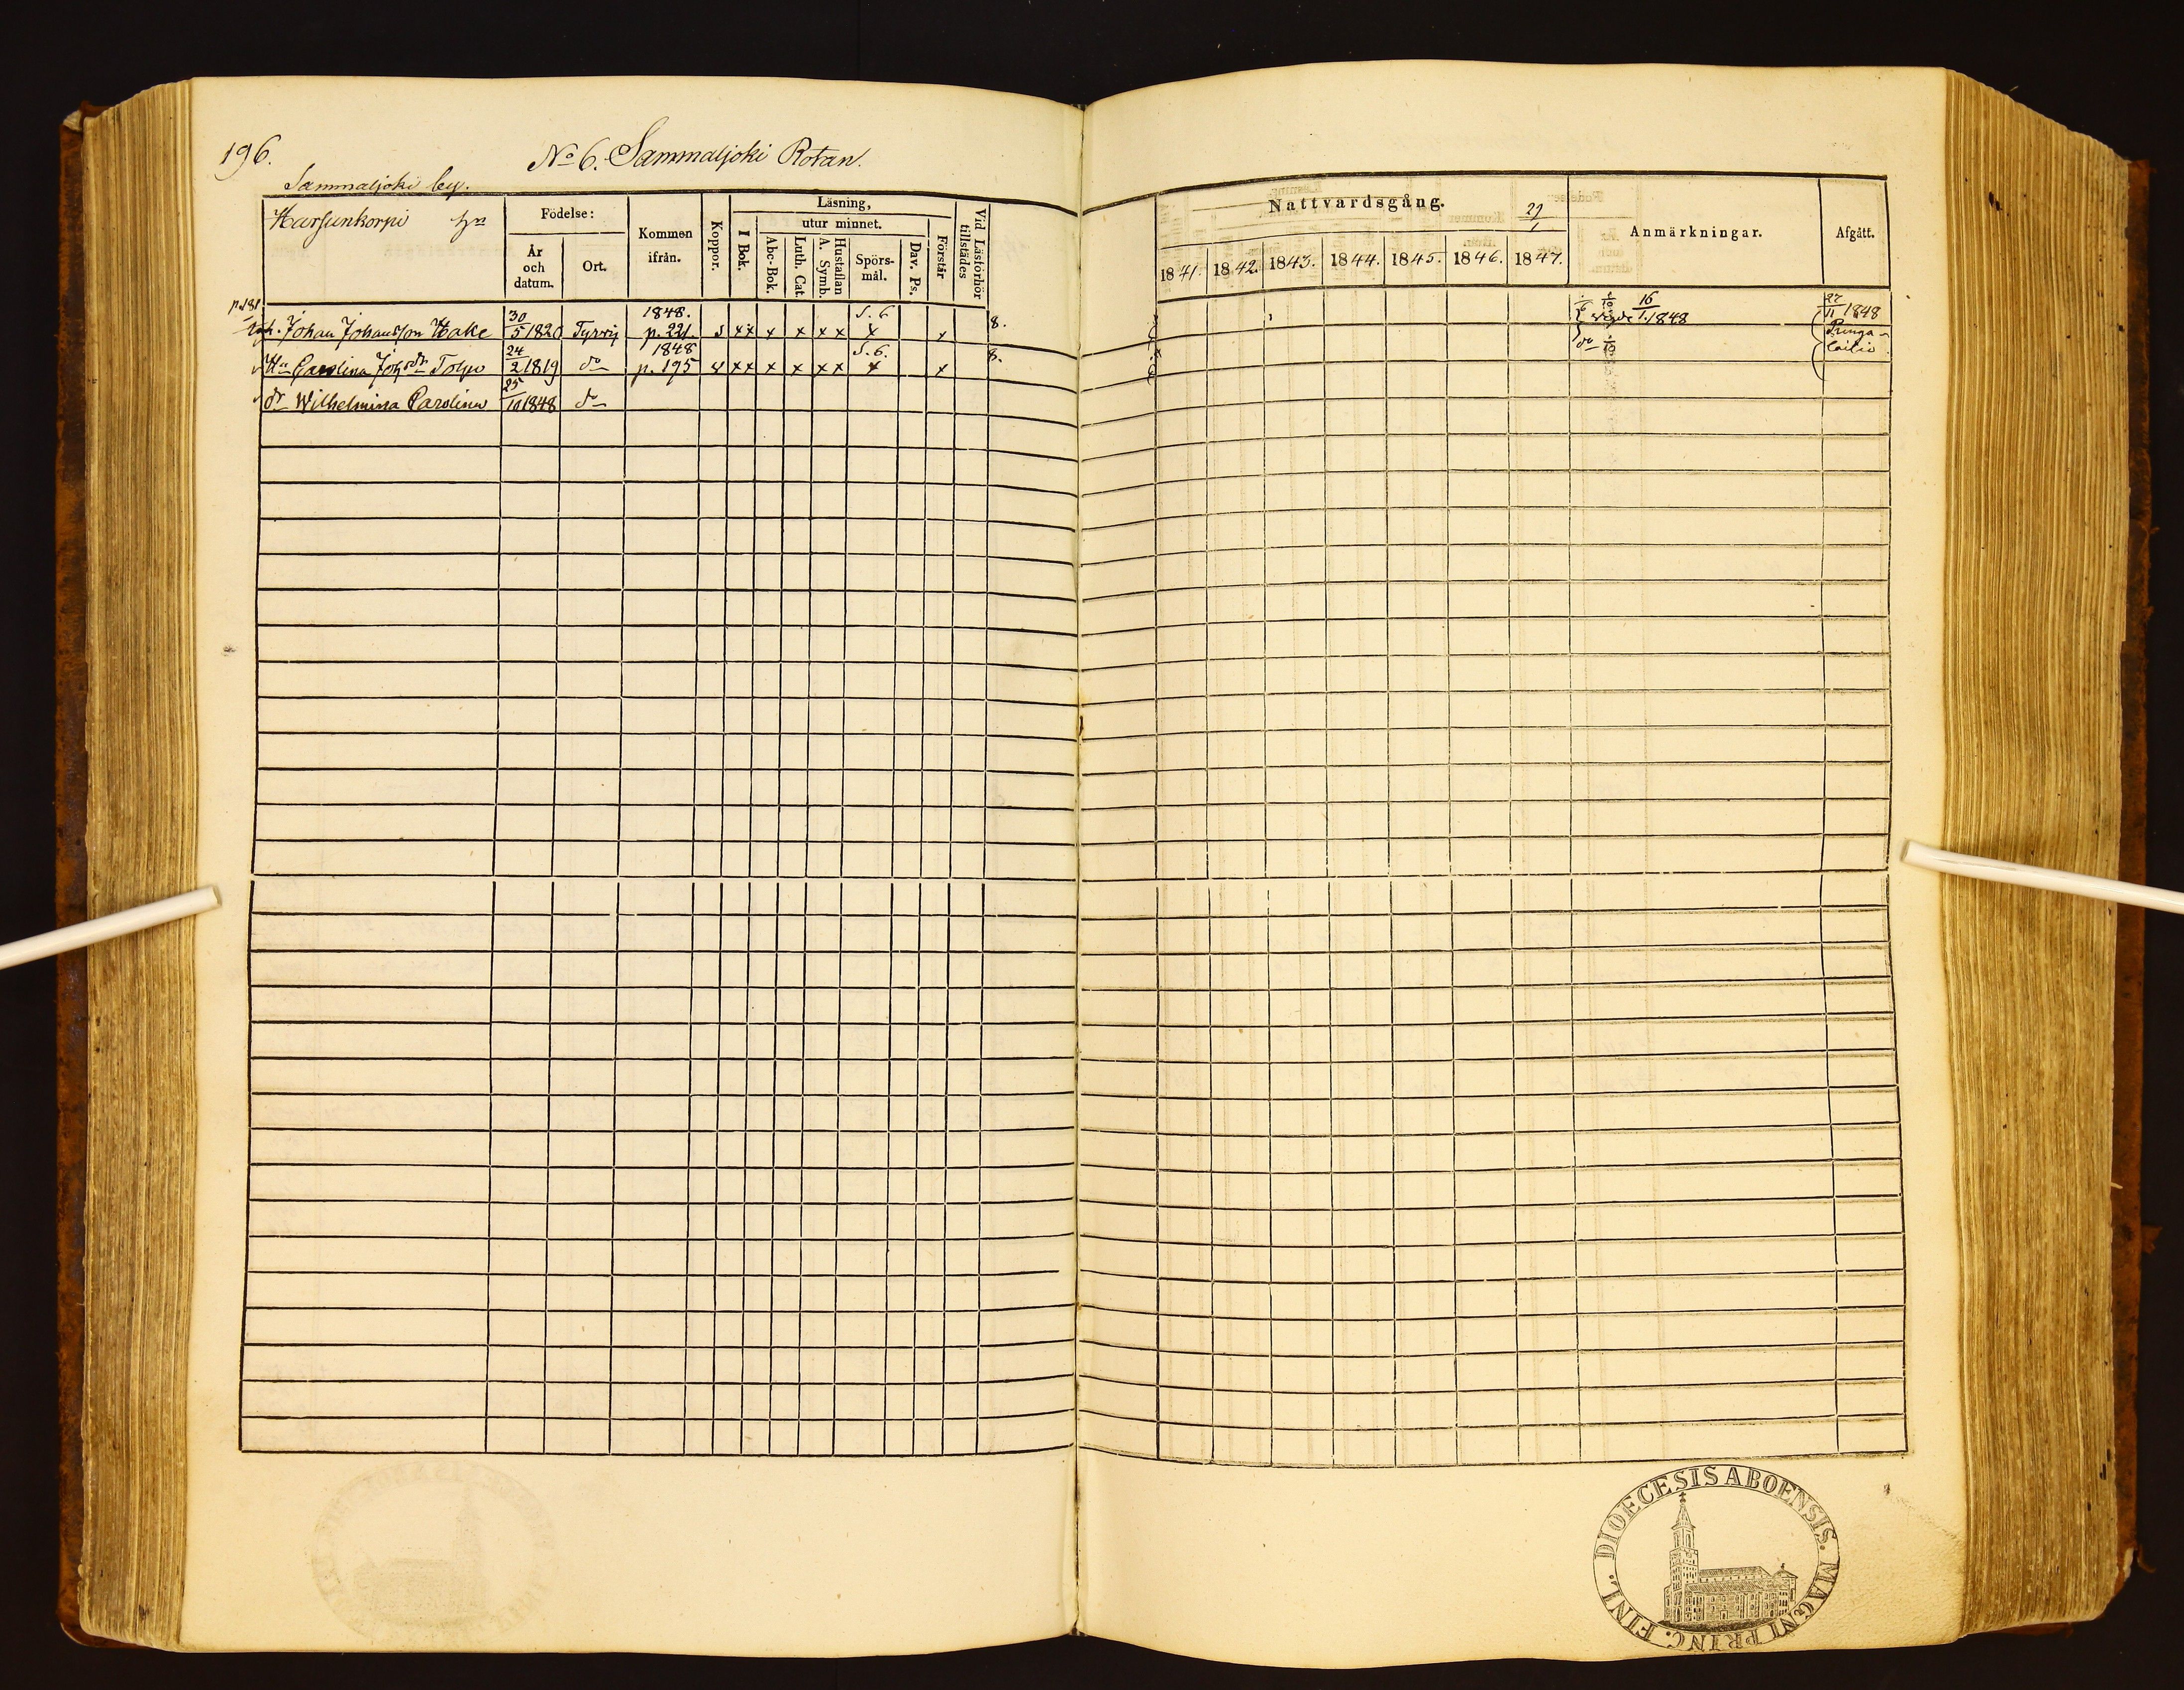 196.
No 6. Sammaljoki Rotan.
Sammaljoki by.
Födelse:
År och datum.
Ort.
Kommen ifrån.
Koppor.
Läsning,
I Bok.
utur minnet.
Abc-Bok.
Luth. Cat.
Hustaflan A. Symb.
Spörs-mål.
Dav. Ps.
Förstår
Vid Läsförhör tillstädes
Nattvardsgång.
29
1841. 1842. 1843. 1844. 1845. 1846. 1847.
Anmärkningar.
Afgått.
p. 181
Johan Johansson Hake 30/5 1820 Tyrvis 1848. p. 221. s xx x x xx S. 6 x x 8. Vigde 16/1 1848 27/11 1848
Hu Carolina Johsdr Tolpo 24/2 1819 do 1848 p. 195 v xx x x xx S. 6. x x 8. do
dr Wilhelmina Carolina 25/10 1848 do
DIOECESIS ABOENSIS. MAGNI PRINC. FINL.